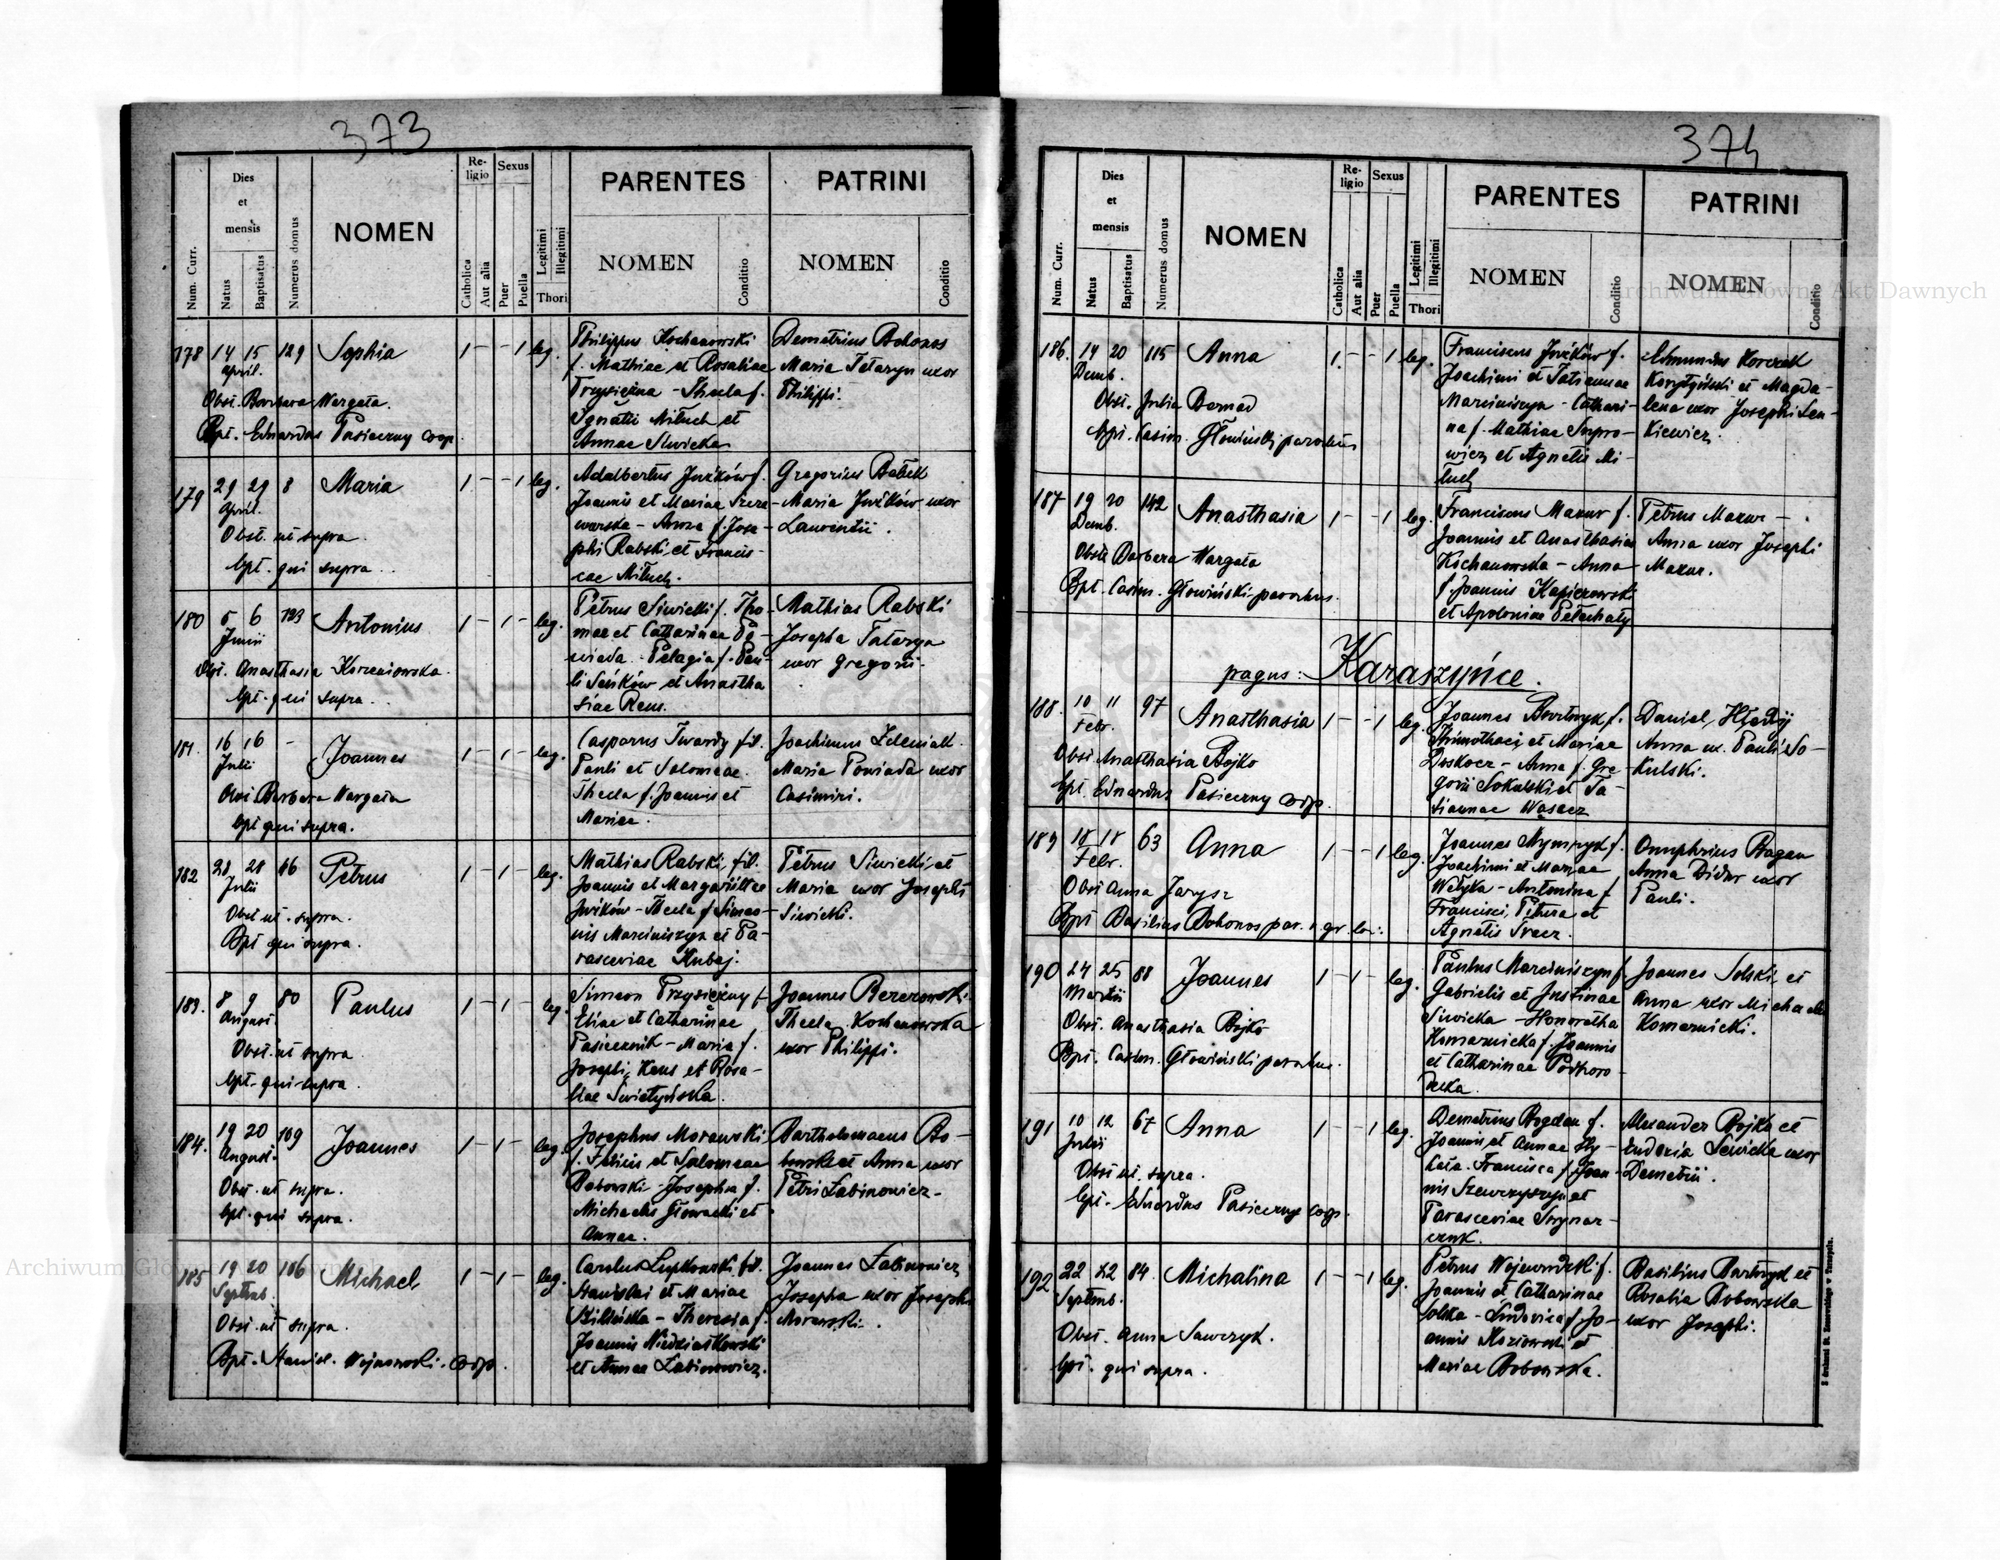 373
Num. Curr.
Dies et mensis
Natus
Baptisatus
Numerus domus
NOMEN
Religio
Catholica
Aut alia
Sexus
Puer
Puella
Legitimi
Illegitimi
Thori
PARENTES
NOMEN
Conditio
PATRINI
NOMEN
Conditio
178 14 15 129 Sophia 1 – – 1 leg.
April.
Obst. Barbara Wargata.
Bpt. Eduardus Pasieczny coop.
Philippus Kochanowski
f. Mathiae et Rosaliae
– Thecla f.
Ignatii Mituch et
Annae Siwicka
Demetrius Bohonos
Maria Tataryn uxor
Philippi.
179 29 29 8 Maria 1 – – 1 leg.
April.
Obst. ut supra.
Bpt. qui supra.
Adalbertus Juźków f.
Joannis et Mariae
– Anna f. Jose-
phi Rabski et Francis-
cae Mituch.
Gregorius Babek
– Maria Juźków uxor
Laurentii.
180 5 6 123 Antonius 1 – 1 – leg.
Junii
Obst. Anasthasia Korzeniowska.
Bpt. qui supra.
Petrus Siwicki f. Tho-
mae et Catharinae Po-
wiada. Pelagia f. Pau-
li Seńków et Anastha
siae Rens.
Mathias Rabski
Josepha Tataryn
uxor Gregorii.
181. 16 16 – Joannes 1 – 1 – leg.
Julii
Obst. Barbara Wargata
Bpt. qui supra.
Casparus Twardy fil.
Pauli et Salomeae.
Thecla f. Joannis et
Mariae.
Joachimus Zeleniak.
Maria Powiada uxor
Casimiri.
182 28 28 86 Petrus 1 – 1 – leg.
Julii
Obst. ut supra.
Bpt. qui supra.
Mathias Rabski, fil.
Joannis et Margarittae
Juźków – Thecla f. Simeo-
nis Marciniszyn et Pa-
rasceviae Kubaj.
Petrus Siwicki et
Maria uxor Josephi
Siwicki.
183. 8 9 80 Paulus 1 – 1 – leg.
August.
Obst. ut supra
Bpt. qui supra.
Simeon Przysiężny f.
Eliae et Catharinae
Pasiecznik – Maria f.
Josephi Kens et Rosa-
liae Swietyńska.
Joannes Berezowski.
Thecla Kochanowska
uxor Philippi.
184. 19 20 109 Joannes 1 – 1 – leg.
August.
Obst. ut supra.
Bpt. qui supra.
Josephus Morawski
f. Felicis et Salomeae
Bobowski – Josepha f.
Michaelis Głowacki et
Annae.
Bartholomaeus Bo-
bowski et Anna uxor
Petri Łabinowicz.
185 19 20 106 Michael 1 – 1 – leg.
Septemb.
Obst. ut supra.
Bpt. Daniel. Wojnowski. coop.
Carolus Lupkowski fil.
Stanislai et Mariae
Bilińska – Theresia f.
Joannis Niedziałkowski
et Annae Łabinowicz.
Joannes Łabinowicz
Josepha uxor Josephi
Morawski.
374
Num. Curr.
Dies et mensis
Natus
Baptisatus
Numerus domus
NOMEN
Religio
Catholica
Aut alia
Sexus
Puer
Puella
Legitimi
Illegitimi
Thori
PARENTES
NOMEN
Conditio
PATRINI
NOMEN
Conditio
186. 14 20 115 Anna 1 – – 1 leg.
Decemb.
Obst. Julia Bernad
Bpt. Casim. Głowiński parochus
Franciscus Juźków f.
Joachimi et Tatiannae
Marciniszyn – Cathari-
na f. Mathiae Supro-
wicz et Agnetis Mi-
tuch
Edmundus Korczak
Korytyński et Magda-
lena uxor Josephi Len-
kiewicz.
187 19 20 142 Anasthasia 1 – – 1 leg.
Decemb.
Obst. Barbara Wargata
Bpt. Casim. Głowiński parochus.
Franciscus Mazur f.
Joannis et Anasthasiae
Kochanowska – Anna
f. Joannis
et Apoloniae Petechaty
Petrus Mazur –
Anna uxor Josephi
Mazur.
pagus: Karaszyńce.
188. 10 11 97 Anasthasia 1 – – 1 leg.
Febr.
Obst. Anasthasia Bojko
Bpt. Eduardus Pasieczny coop.
Joannes Bartnyk f.
Thimothaei et Mariae
Doskocz – Anna f. Gre-
gorii Sokulski et Ta-
tiannae Wąsacz
Daniel Hładij
Anna ux. Pauli So-
kulski.
189 18 18 63 Anna 1 – – 1 leg.
Febr.
Obst. Anna Jarysz
Bpt. Basilius Bohonos par. gr.
Joannes f.
Joachimi et Mariae
Wełyka – Antonina f.
Francisci Pitura et
Agnetis Tracz.
Onuphrius Bagan
Anna Didur uxor
Pauli.
190 24 25 88 Joannes 1 – 1 – leg.
Martii
Obst. Anasthasia Bojko
Bpt. Casim. Głowiński parochus.
Paulus Marciniszyn f.
Gabrielis et Justinae
Siwicka – Honoratha
Komarnicka f. Joannis
et Catharinae Podhoro-
decka.
Joannes Solski et
Anna uxor Michaelis
Komarnicki.
191 10 12 67 Anna 1 – – 1 leg.
Julii
Obst. ut supra.
Bpt. Eduardus Pasieczny coop.
Demetrius Bogdan f.
Joannis et Annae Hy-
kata. Francisca f. Joan-
nis Szewczyszyn et
Parasceviae Smynar-
czuk.
Alexander Bojko et
Eudoxia Sewicka uxor
Demetrii.
192 22 22 84. Michalina 1 – – 1 leg.
Septemb.
Obst. Anna Sawczyk.
Bpt. qui supra.
Petrus Wojewódzki f.
Joannis et Catharinae
Solska – Ludovica f. Jo-
annis Kozłowski et
Mariae Bobowska.
Basilius Bartnyk et
Rosalia Bobowska
uxor Josephi.
Archiwum Główne Akt Dawnych